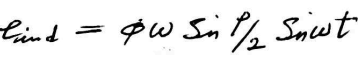 e_ind = φω Sin ρ/2 Sinωt